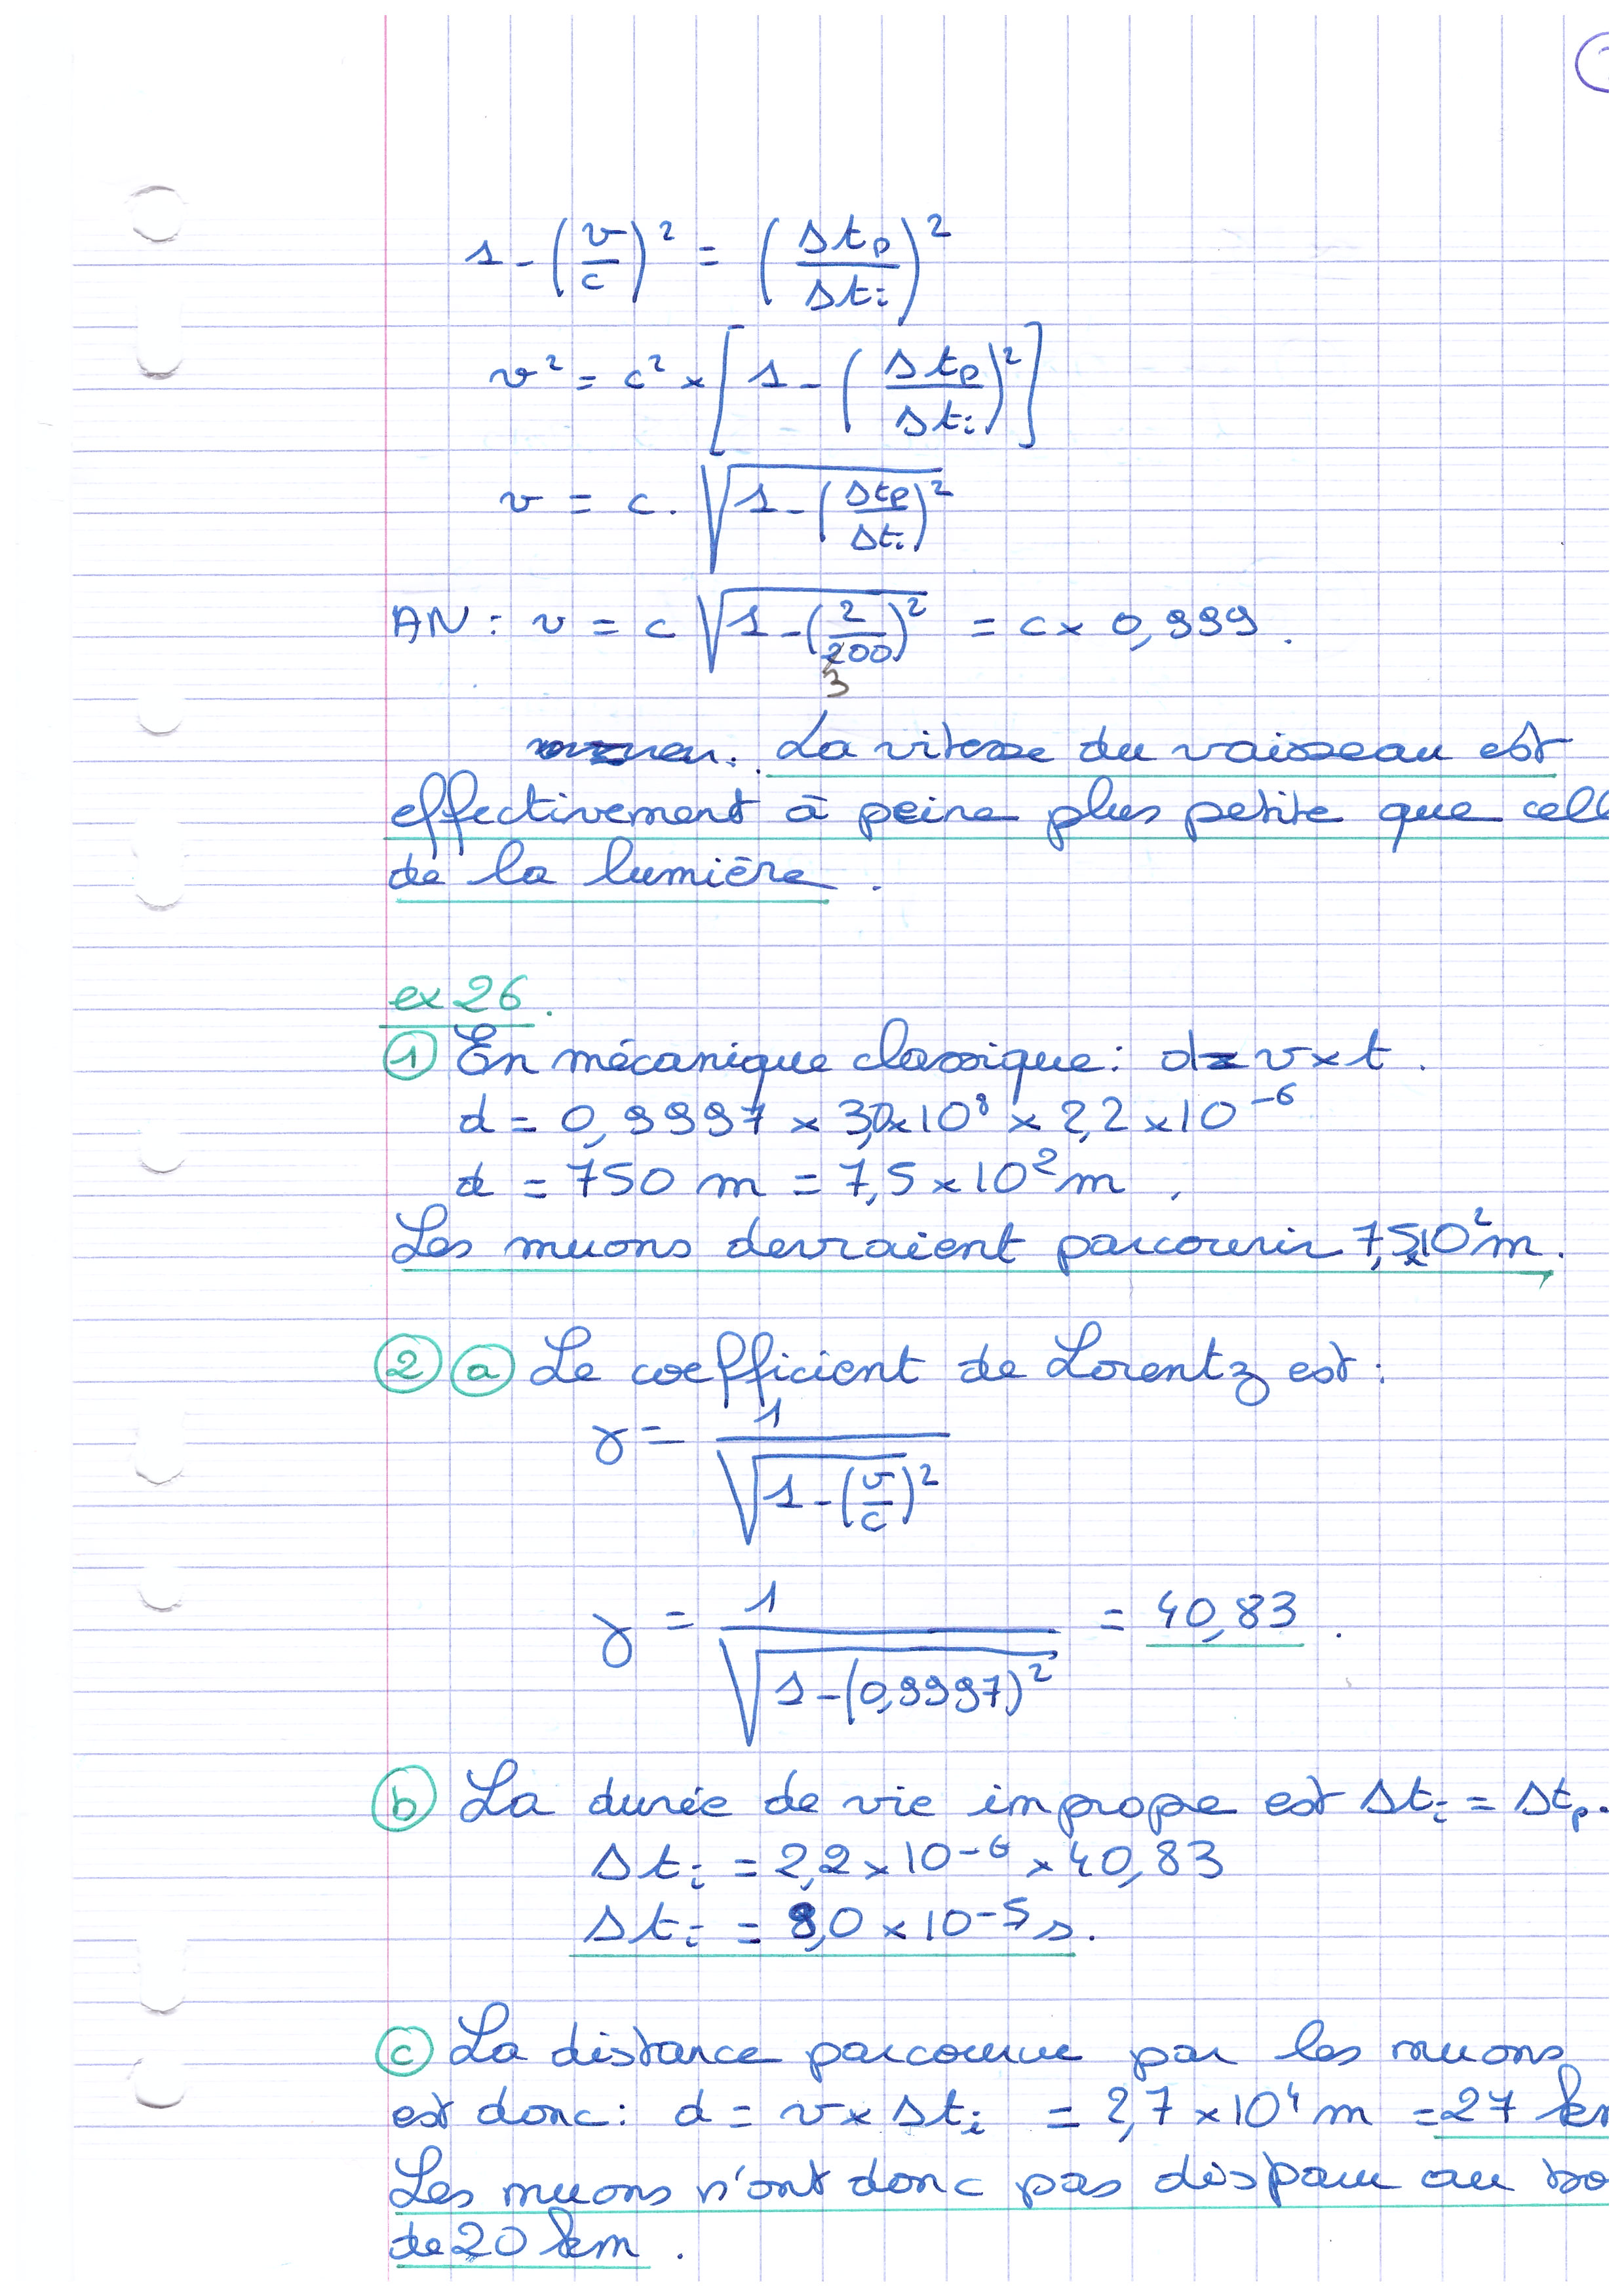 1 - (v/c)² = (Δtp/Δti)²
v² = c² × [1 - (Δtp/Δti)²]
v = c . √(1 - (Δtp/Δti)²)
AN : v = c √(1 - (2/200)²) = c × 0,999 .
3
La vitesse du vaisseau est
effectivement à peine plus petite que cell
de la lumière .
ex 26 .
① En mécanique classique : d = v × t .
d = 0,9997 × 3,0×10⁸ × 2,2 × 10⁻⁶
d = 750 m = 7,5 × 10² m .
Les muons devraient parcourir 7,5×10² m .
② ⓐ Le coefficient de Lorentz est :
γ = 1/√(1 - (v/c)²)
γ = 1/√(1 - (0,9997)²) = 40,83 .
ⓑ La durée de vie impropre est Δti = Δtp .
Δti = 2,2 × 10⁻⁶ × 40,83
Δti = 9,0 × 10⁻⁵ s .
ⓒ La distance parcourue par les muons
est donc : d = v × Δti = 2,7 × 10⁴ m = 27 km
Les muons n'ont donc pas disparu au bo
de 20 km .